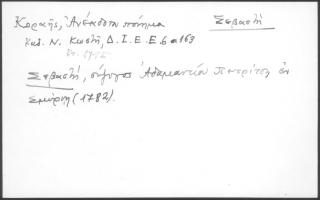 Κοραῆς, Ἀνέκδοτα ποιήματα Σεβαστὴ
Κωδ. Ν. Κωστῆ, Δ.Ι.Ε.Ε. 6 α 163
Σεβαστὴ, σύζυγος Ἀδαμαντίου Πετρίτση ἐν
Σμύρνῃ (1782).